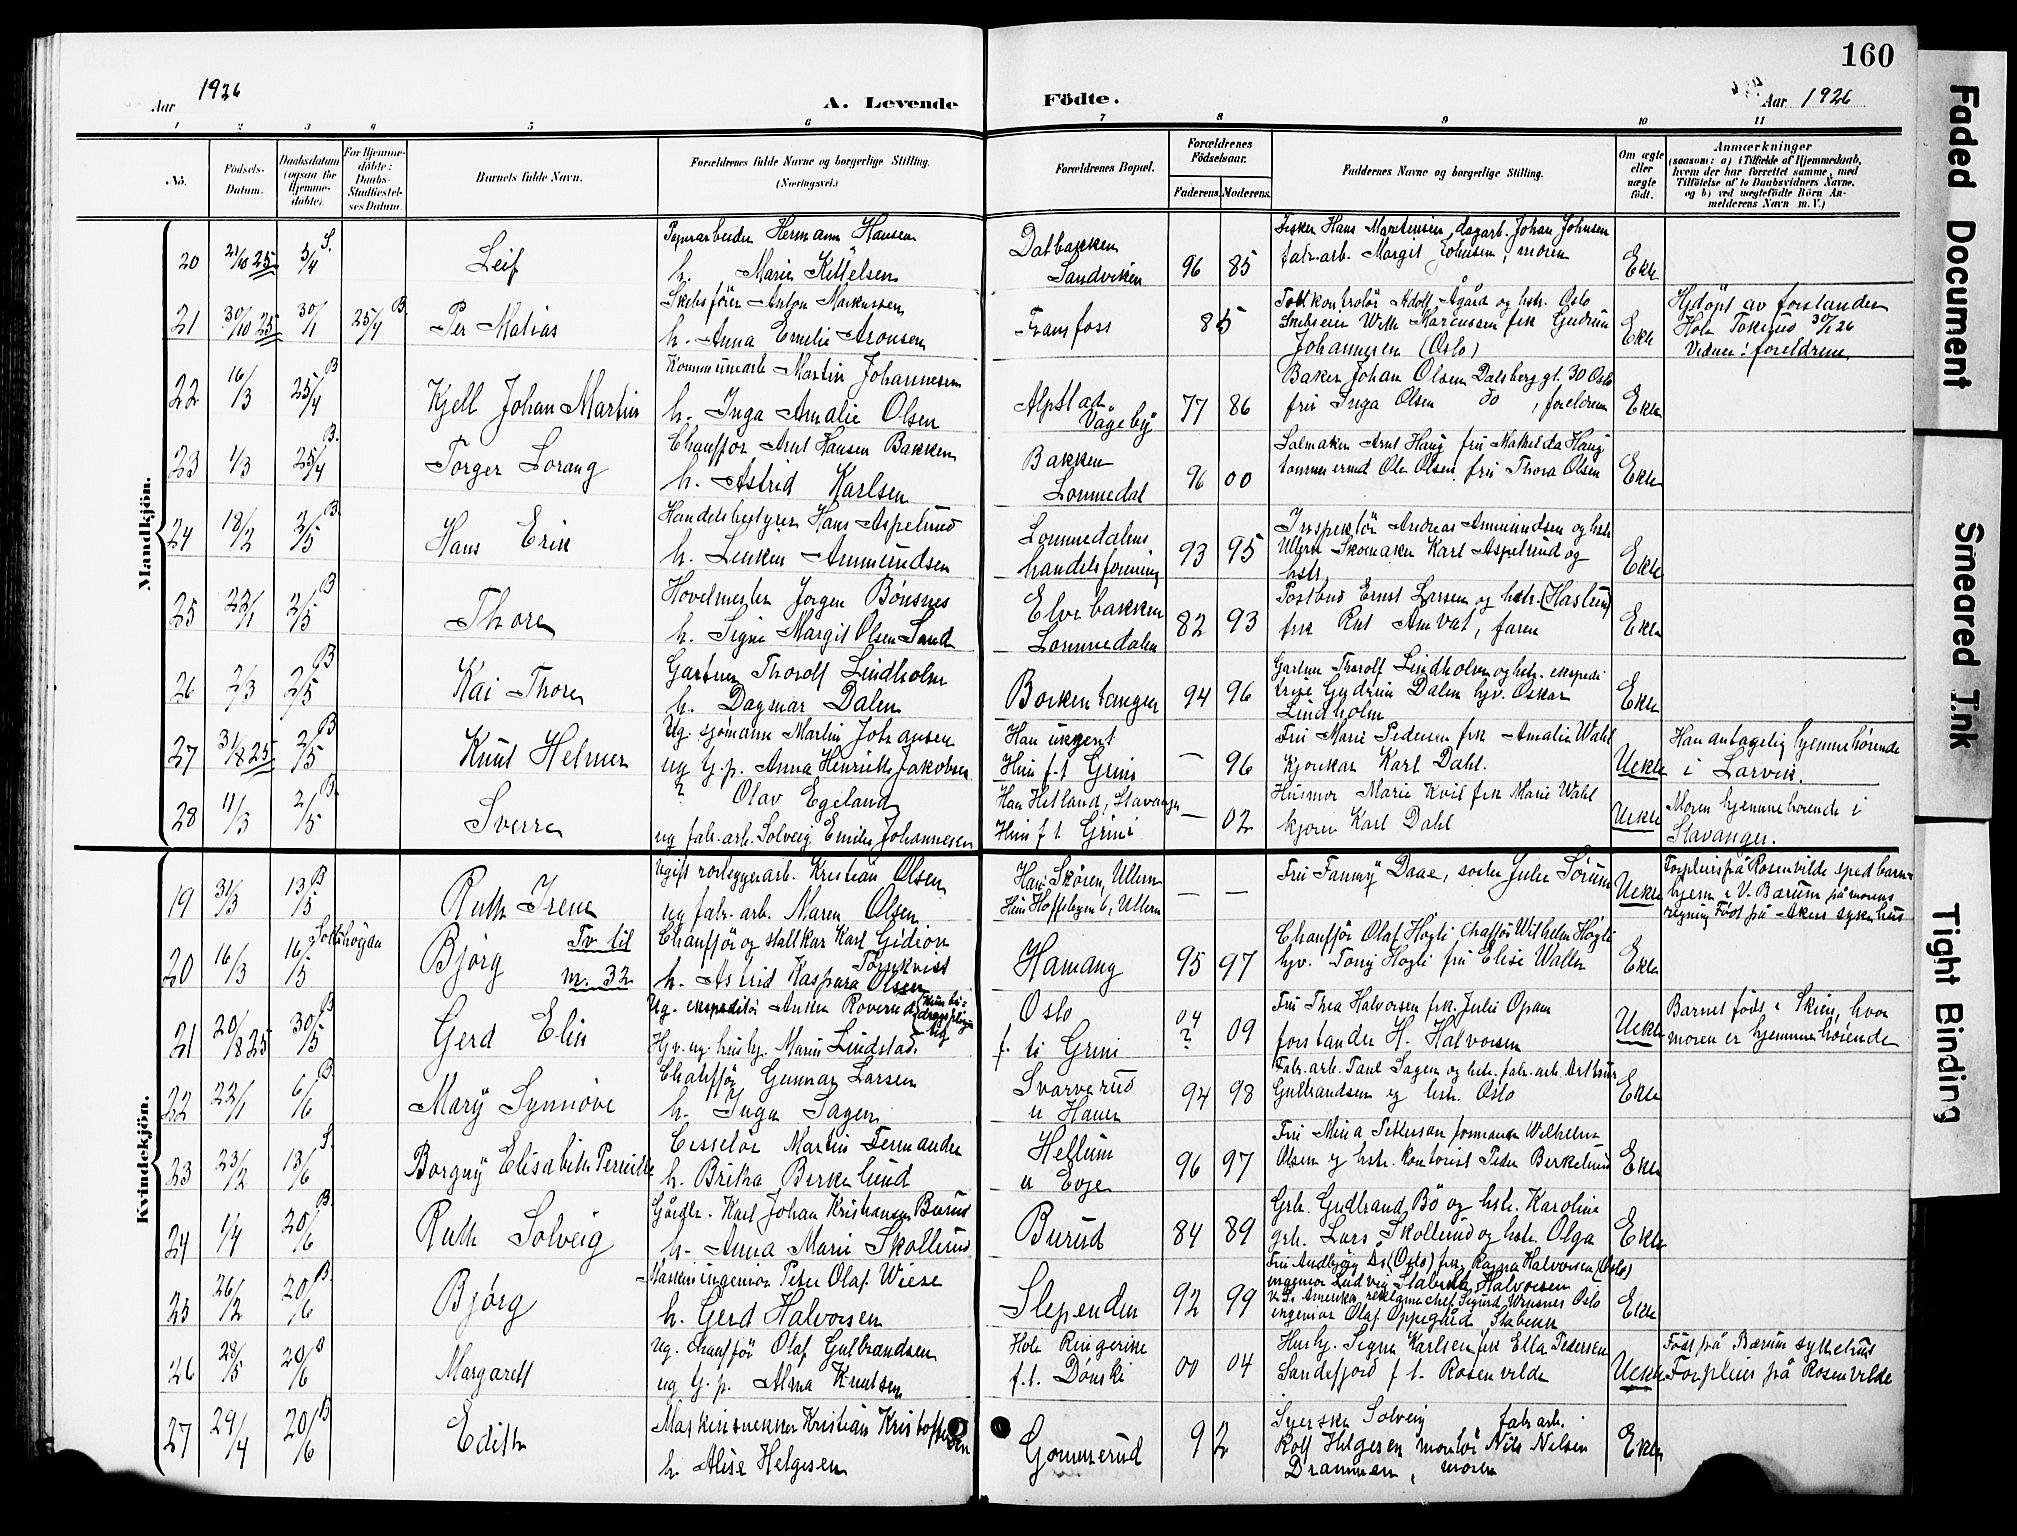 160
Aar 1926
A. Levende Födte.
Aar 1926
1 2 3 4 5 6 7 8 9 10 11
No.
Födsels-Datum.
Daabsdatum (ogsaa for Hjemme-döbte).
For Hjemme-döbte: Daabs-Stadfæstel-ses Datum.
Barnets fulde Navn.
Forældrenes fulde Navne og borgerlige Stilling. (Næringsvei.)
Forældrenes Bopæl.
Forældrenes Födselsaar.
Faderens. Moderens.
Faddernes Navne og borgerlige Stilling.
Om ægte eller uægte födt.
Anmærkninger
(saasom: a) i Tilfælde af Hjemmedaab, hvem der har forrettet samme, med Tilföielse af to Daabsvidners Navne, og b) ved uegtefödte Börn An-melderens Navn m. V.)
Mandkjön.
20 21/10 25 5/4 S. Leif
Papirarbeider Hermann Hansen
h. Marie Kittelsen
Dalbakken
Sandviken
96 85
Fisker Hans Martinsen, dagarb. Johan Johnsen
fabr.arb. Margit Johnsen, moren
Ekte
21 30/10 25 30/1 25/4 B. Per Matias
Skibsfører Anton Markussen
h. Anna Emelie Aronsen
Framfoss
85
Tollkontrolør Adolf Ågård og hstr. Oslo
Skibseier Wilh Marcussen frk Gudrun
Johannesen (Oslo)
Ekte
Hjdøpt av forstander
Hole Tokerud 30/1 26
Vidner: foreldrene
22 16/3 25/4 B Kjell Johan Martin
Kommunearb Martin Johannesen
h. Inga Amalie Olsen
Alpstad
Vågeby
77 86
Baker Johan Olsen Dalsberg gt. 30 Oslo
fru Inga Olsen do, foreldrene
Ekte
23 1/3 25/4 B. Torger Lorang
Chauffør Arnt Hansen Bakken
h. Astrid Karlsen
Bakken
Lommedal
96 00
Salmaker Arnt Haug fru Mathilda Haug
tømmermd Ole Olsen fru Thora Olsen
Ekte
24 18/2 2/5 B. Hans Erik
Handelsbestyrer Hans Aspelund
h. Lenken Ammundsen
Lommedalens
handelsforening
93 95
Inspektør Andreas Ammundsen og hstr
Ullern Skomaker Karl Aspelund og
hstr.
Ekte
25 22/1 2/5 B Thore
Høvelmester Jørgen Bönsnes
h. Signe Margit Olsen Sand
Elvebakken
Lommedalen
82 93
Postbud Ernst Larsen og hstr. (Haslum)
frk Rut Amvat, faren
Ekte
26 2/3 2/5 B Kai Thore
Gartner Thorolf Lindholm
h. Dagmar Dalen
Borkentangen
94 96
Gartner Thorolf Lindholm og hstr. ekspedi
trise Gudrun Dalen hjv. Oskar
Lindholm
Ekte
27 31/8 25 2/5 B Knut Helmer
Ug. sjømann Martin Johansen
ug tj.p. Anna Henrikke Jakobsen
Han ukjent
Hun f.t Grini
— 96
Fru Marie Pedersen frk Amalie Wahl
kjørekar Karl Dahl.
Uekte
Han antagelig hjemmehørende
i Larvik.
28 11/3 2/5 B. Sverre
? Olav Egeland
ug fabr.arb. Solveig Emilie Johannesen
Han Hetland, Stavanger
Hun f t Grini
— 02
Husmor Marie Kvil frk Marie Wahl
kjører Karl Dahl
Uekte
Moren hjemmehørende i
Stavanger.
Kvindekjön.
19 31/3 13/5 B Ruth Irene
Ugift rørleggerarb. Kristian Olsen
ug fabr. arb. Maren Olsen
Han: Skøren, Ullern
Hun Hoffsbyen 6, Ullern
— —
Fru Fanny Daae, søster Julie Sørum
Uekte
Forpleies på Rosenvilde spedbarn-
hjem i V. Bærum på morens
regning Født på Akers sykehus
20 16/3 16/5 Solihøgda Bjørg Tv til nr. 32
Chauffør og stallkar Karl Gidion Törnkvist
h. Astrid Kaspara Olsen
Hamang
95 97
Chauffør Olaf Høgli Chaffør Wilhelm Høgli
hjv. Tony Høgli fru Elise Walter
Ekte
21 20/8 25 30/5 B Gerd Elin
Ug. ekspeditør Anker Roverud
Hjv. ug. husbj. Marie Lindstad
Oslo
f. ti Grini
04 ? 09
Fru Thea Halvorsen frk. Julie Opam
forstander H. Halvorsen
Uekte
Barnet født i Skien, hvor
moren er hjemmehørende
22 22/1 6/6 B Mary Synnöve
Chauffør Gunnar Larsen
h. Inga Sagen
Svarverud
u Hauer
94 98
Fabr.arb. Paul Sagen og hstr. fabr.arb. Arthur
Gulbrandsen og hstr. Oslo
Ekte
23 23/2 13/6 Borgny Elisabeth Pernille
Ciselør Martin Fernander
h. Britha Berkelund
Hellum
u Evje
96 97
Fru Mina Petterson formann Wilhelm
Olsen og hstr. kontorist Peder Berkelund
Ekte
24 1/4 20/6 B. Ruth Solveig
Gårdbr. Karl Johan Kristiansen Burud
h. Anna Marie Skollerud
Burud
84 89
Grb. Gudbrand Bö og hstr. Karoline
grb. Lars Skollerud og hstr. Olga
Ekte
25 26/2 20/6 B. Bjørg
Maskiningeniør Peter Olaf Wiese
h. Gerd Halvorsen
Slependen
92 99
Fru Andbjørg As (Oslo) frk Ragna Halvorsen (Oslo)
ingeniør Ludvig Stabell Halvorsen
U.S. Amerika reklamechef Sigurd Wensner Oslo
ingeniør Olaf Oppegård Stabekk
Ekte
26 28/5 20/6 Margarett
Ug. chauffør Olaf Gulbrandsen
ug tj. p. Alma Knutsen
Hole Ringerike
f.t. Dønski
00 04
Husbj. Signe Karlsen frk Ella Pedersen
Sandefjord f t. Rosenvilde
Uekte
Født på Bærum sykehus
Forpleies på Rosenvilde
27 29/4 20/6 B Edith
Maskinsnekker Kristian Kristoffersen
h. Alise Helgesen
Gommerud
92
Syerske Solveig , fabr.arb.
Rolf Helgesen montør Nils Nilsen
Drammen, moren
Ekte
Faded Document
Smeared Ink
Tight Binding